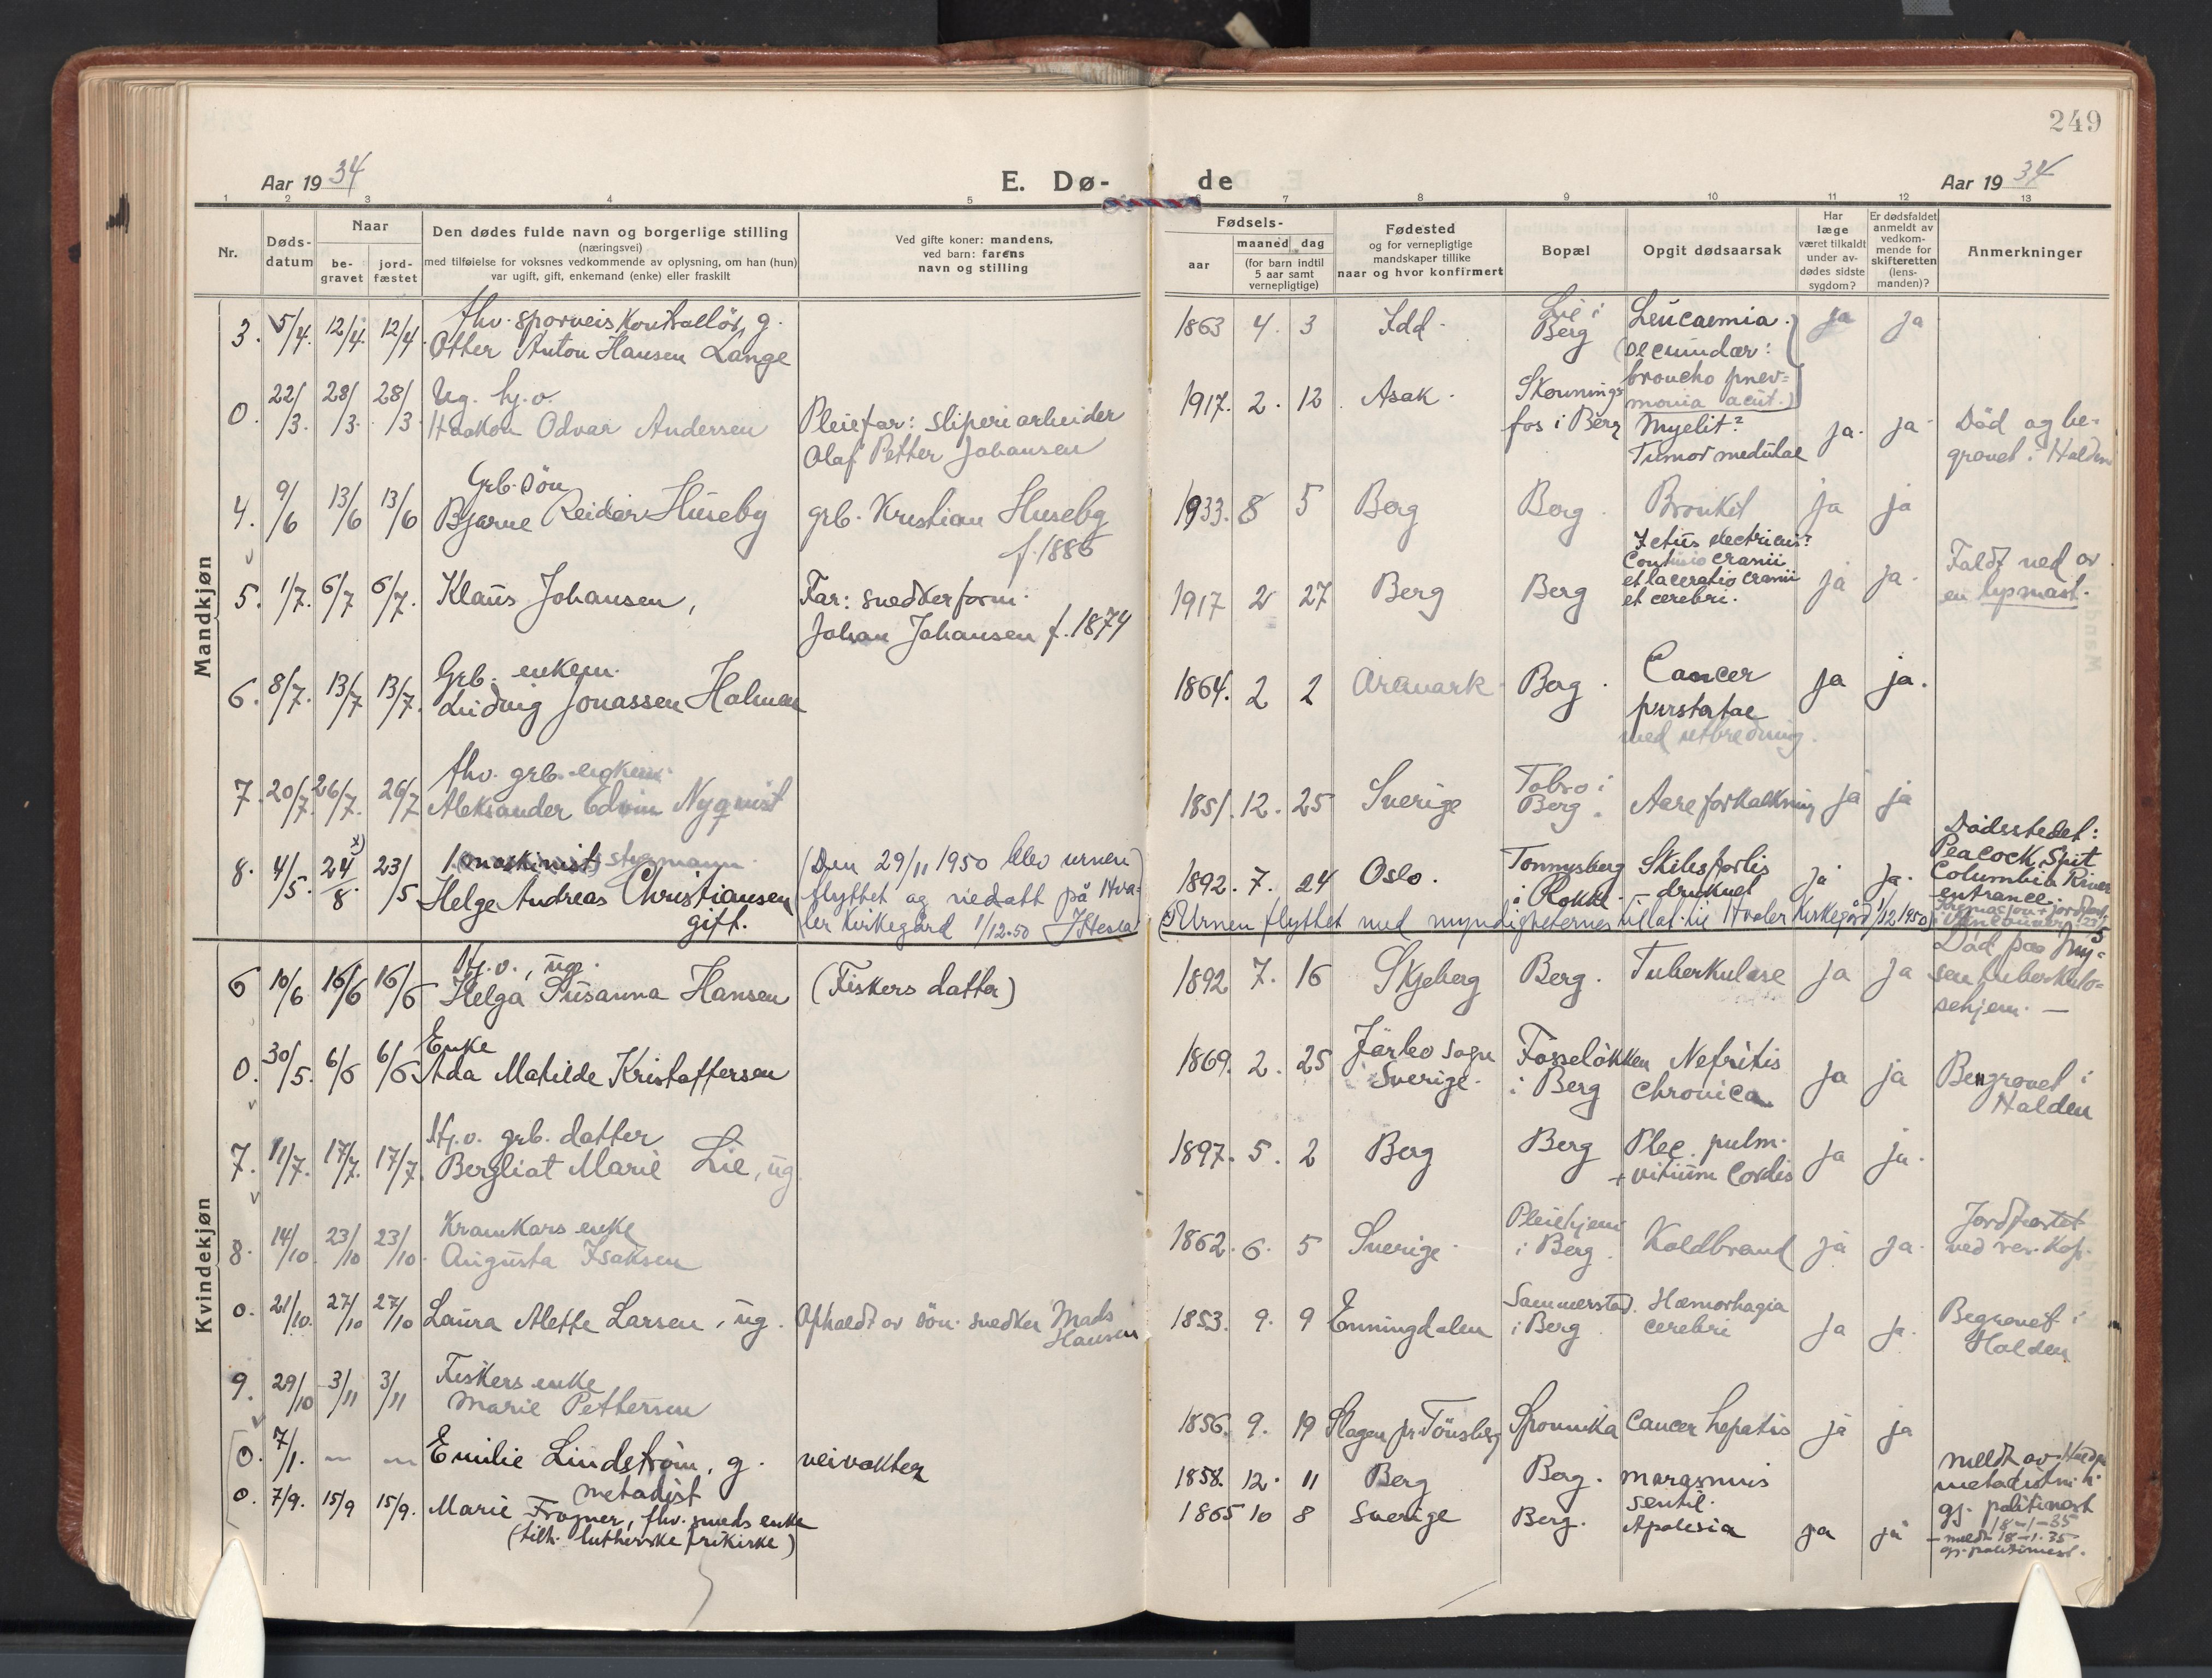 249
Aar 1934 E. Dø- de Aar 1934
1 2 3 4 5 7 8 9 10 11 12 13
Nr.
Døds-
datum
Naar
be-
gravet
jord-
fæstet
Den dødes fulde navn og borgerlige stilling
(næringsvei)
med tilføielse for voksnes vedkommende av oplysning, om han (hun)
var ugift, gift, enkemand (enke) eller fraskilt
Ved gifte koner: mandens,
ved barn: farens
navn og stilling
Fødsels-
aar
maaned dag
(for barn indtil
5 aar samt
vernepligtige)
Fødested
og for vernepligtige
mandskaper tillike
naar og hvor konfirmert
Bopæl
Opgit dødsaarsak
Har
læge
været tilkaldt
under av-
dødes sidste
sygdom?
Er dødsfaldet
anmeldt av
vedkom-
mende for
skifteretten
(lens-
manden)?
Anmerkninger
Mandkjøn
3. 5/4. 12/4. 12/4.
fhv. sporveiskontrollør, g.
Otter Anton Hansen Lange
1863 4. 3 Idd.
Lie i
Berg
Leucaemia.
(secundær:
broncho pnev=
monia acut.)
ja ja
0. 22/3. 28/3. 28/3
Ug. hj.o.
Haakon Odvar Andersen
Pleiefar: sliperiarbeider
Olaf Petter Johansen
1917. 2. 12. Asak.
Skonnings-
fos i Berg
Myelit?
Tumor medulae
ja. ja
Død og be-
gravet i Halden
4. 9/6 13/6 13/6
Grb. søn
Bjarne Reidar Huseby
grb. Kristian Huseby
f. 1886
1933. 8 5 Berg Berg. Bronkit ja ja
5. 1/7. 6/7 6/7.
Klaus Johansen,
Far: snedkerform.
Johan Johansen f. 1874
1917 2 27 Berg Berg
Ictus electricus?
Contusio cranii
et laceratio cranii
et cerebri.
ja ja.
Faldt ned av
en lysmast.
6. 8/7. 13/7 13/7.
Grb. enkem.
Ludvig Jonassen Holmen
1864. 2 2 Aremark. Berg.
Cancer
prostatae
med utbredning.
ja ja.
7. 20/7. 26/7. 26/7
fhv. grb. enkem.
Aleksander Edvin Nyqvist
1851. 12. 25 Sverige
Torbo i
Berg.
Aareforkalkning ja ja
8. 4/5. 24/8. x) 23/5
1. (maskinist) styrmann.
Helge Andreas Christiansen
gift.
(Den 29/11 1950 blev urnen
flyttet og nedsatt på Hva-
ler kirkegård 1/12.50
1892. 7. 24 Oslo.
Tonnysberg
i Rokke.
Skibsforlis
- druknet
ja ja.
Dødsstedet:
Peacock Spit
Columbia River
entrance.
x) Urnen flyttet med myndighetenes tillat. til Hvaler kirkegård 1/12 1950)
Kvindekjøn
6 10/6 16/6 16/6
Hj.o., ug.
Helga Susanna Hansen
(Fiskers datter)
1892 7. 16 Skjeberg Berg. Tuberkulose ja ja
Død paa My-
sen tuberkulo=
sehjem. —
0. 30/5. 6/6 6/6
Enke
Ada Matilde Kristoffersen
1869. 2. 25
Järbo sogn
Sverige.
Fosseløkken
i Berg
Nefritis
chronica
ja ja
Begravet i
Halden
7. 11/7. 17/7. 17/7.
Hj.o. grb. datter
Bergliot Marie Lie, ug.
1897. 5. 2 Berg Berg
Plee. pulm.
+ vitium cordis
ja ja.
8. 14/10. 23/10 23/10.
Kramkars enke
Augusta Isaksen
1862. 6. 5 Sverige.
Pleiehjem
i Berg.
Koldbrand ja ja.
Jordfæstet
ved res. kap.
0. 21/10. 27/10 27/10
Laura Alette Larsen, ug.
Opholdt av søn snedker Mads
Hansen
1853. 9. 9 Enningdalen
Sammerstad.
i Berg.
Hæmorhagia
cerebri
ja ja.
Begravet i
Halden
9. 29/10 3/11 3/11
Fiskers enke
Marie Pettersen
1856. 9. 19 Slagen pr. Tönsberg Sponvika Cancer hepatis ja ja
0. 7/1. — —
Emilie Lindstrøm, g. veivokter
metodist
1858. 12. 11 Berg Berg.
marasmus
senil.
meldt av Haldens
metodistmh.
gj. politimest
18-1-35
0. 7/9. 15/9 15/9.
Marie Frogner, fhv. smeds enke
(tilh. lutherske frikirke)
1865 10 8 Sverige Berg. Apolesia ja ja
- meldt 18-1-35
gj. politimest.